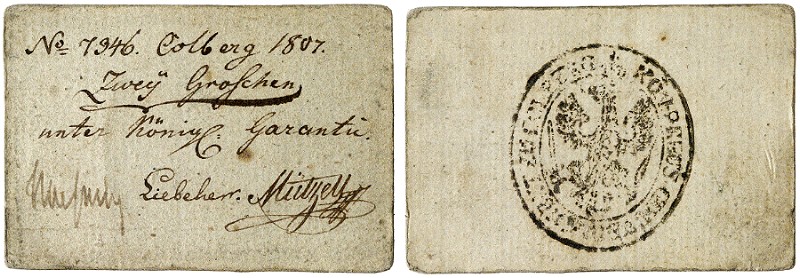 No 7946. Colberg 1807.
Zweÿ Groschen
unter Königl: Garantie.
Liebeherr. Mützell